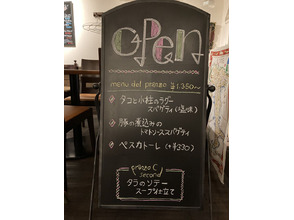 OPen
menu del pranzo ¥1.350〜
・タコと小柱のラグー
スパゲティ(塩味)
・豚の煮込みの
トマトソーススパゲティ
・ペスカトーレ (+¥330)
pranzo C
second
タラのソテー
スープ仕立て